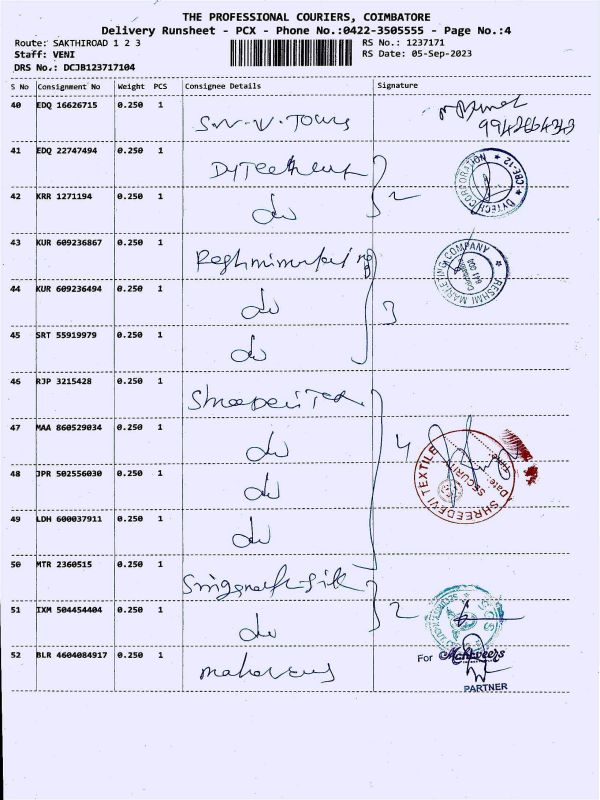 THE PROFESSIONAL COURIERS, COIMBATORE
Delivery Runsheet - PCX - Phone No.:0422-3505555 - Page No.:4
Route: SAKTHIROAD 1 2 3
RS No.: 1237171
Staff: VENI
RS Date: 05-Sep-2023
DRS No.: DCJB123717104
S No Consignment No Weight PCS Consignee Details Signature
40 EDQ 16626715 0.250 1 S.V.V. Tours
41 EDQ 22747494 0.250 1
42 KRR 1271194 0.250 1 do 2
DYTECH CORPORATION ★ CBE-12 ★
43 KUR 609236867 0.250 1
RESHMI MARKETING COMPANY ★
Coimbatore
641 004
44 KUR 609236494 0.250 1 do 3
45 SRT 55919979 0.250 1 do
46 RJP 3215428 0.250 1
47 MAA 860529034 0.250 1 do 4
48 JPR 502556030 0.250 1 do
SHREEDEVI TEXTILE
SECURITY
Date:
Time
49 LDH 600037911 0.250 1 do
50 MTR 2360515 0.250 1
51 IXM 504454404 0.250 1 do 2
52 BLR 4604084917 0.250 1 mahaveers
For Mahaveers
PARTNER